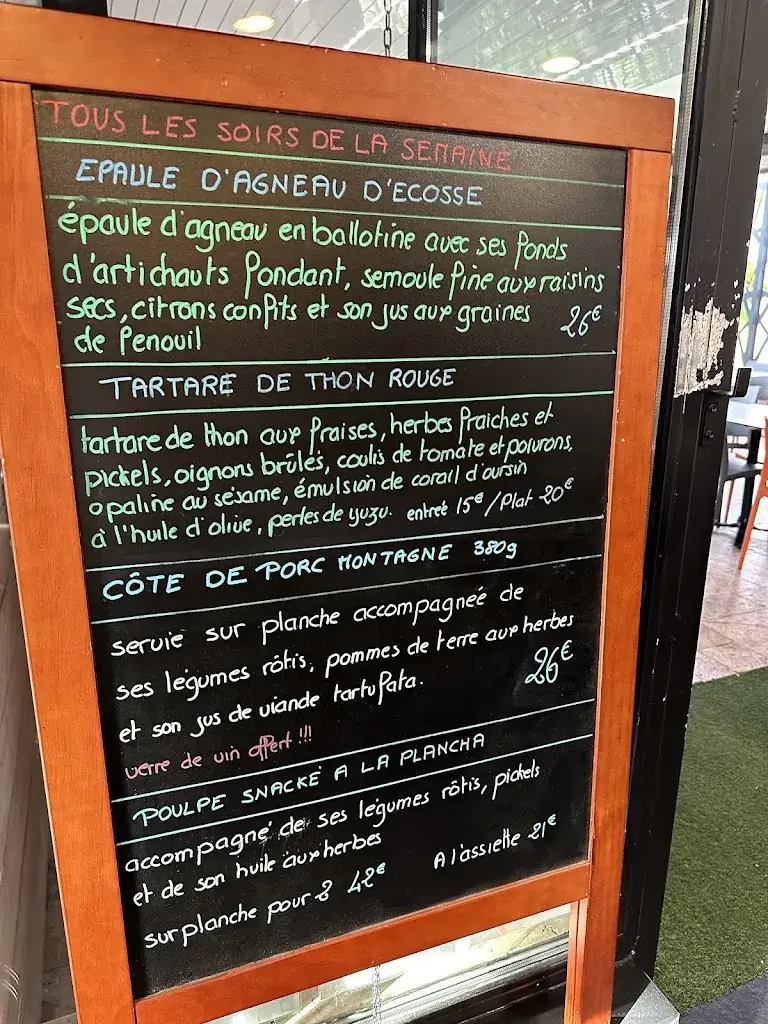 TOUS LES SOIRS DE LA SEMAINE
EPAULE D'AGNEAU D'ECOSSE
épaule d'agneau en ballotine avec ses fonds
d'artichauts fondant, semoule fine aux raisins
secs, citrons confits et son jus aux graines 26€
de fenouil
TARTARE DE THON ROUGE
tartare de thon aux fraises, herbes fraiches et
pickels, oignons brûlés, coulis de tomate et poivrons,
opaline au sésame, émulsion de corail d'oursin
à l'huile d'olive, perles de yuzu. entreé 15€ / Plat 20€
CÔTE DE PORC MONTAGNE 380g
servie sur planche accompagneé de
ses légumes rôtis, pommes de terre aux herbes
et son jus de viande tartufata. 26€
verre de vin offert !!!
POULPE SNACKÉ A LA PLANCHA
accompagné de ses légumes rôtis, pickels
et de son huile aux herbes A l'assiette 21€
sur planche pour 2 42€